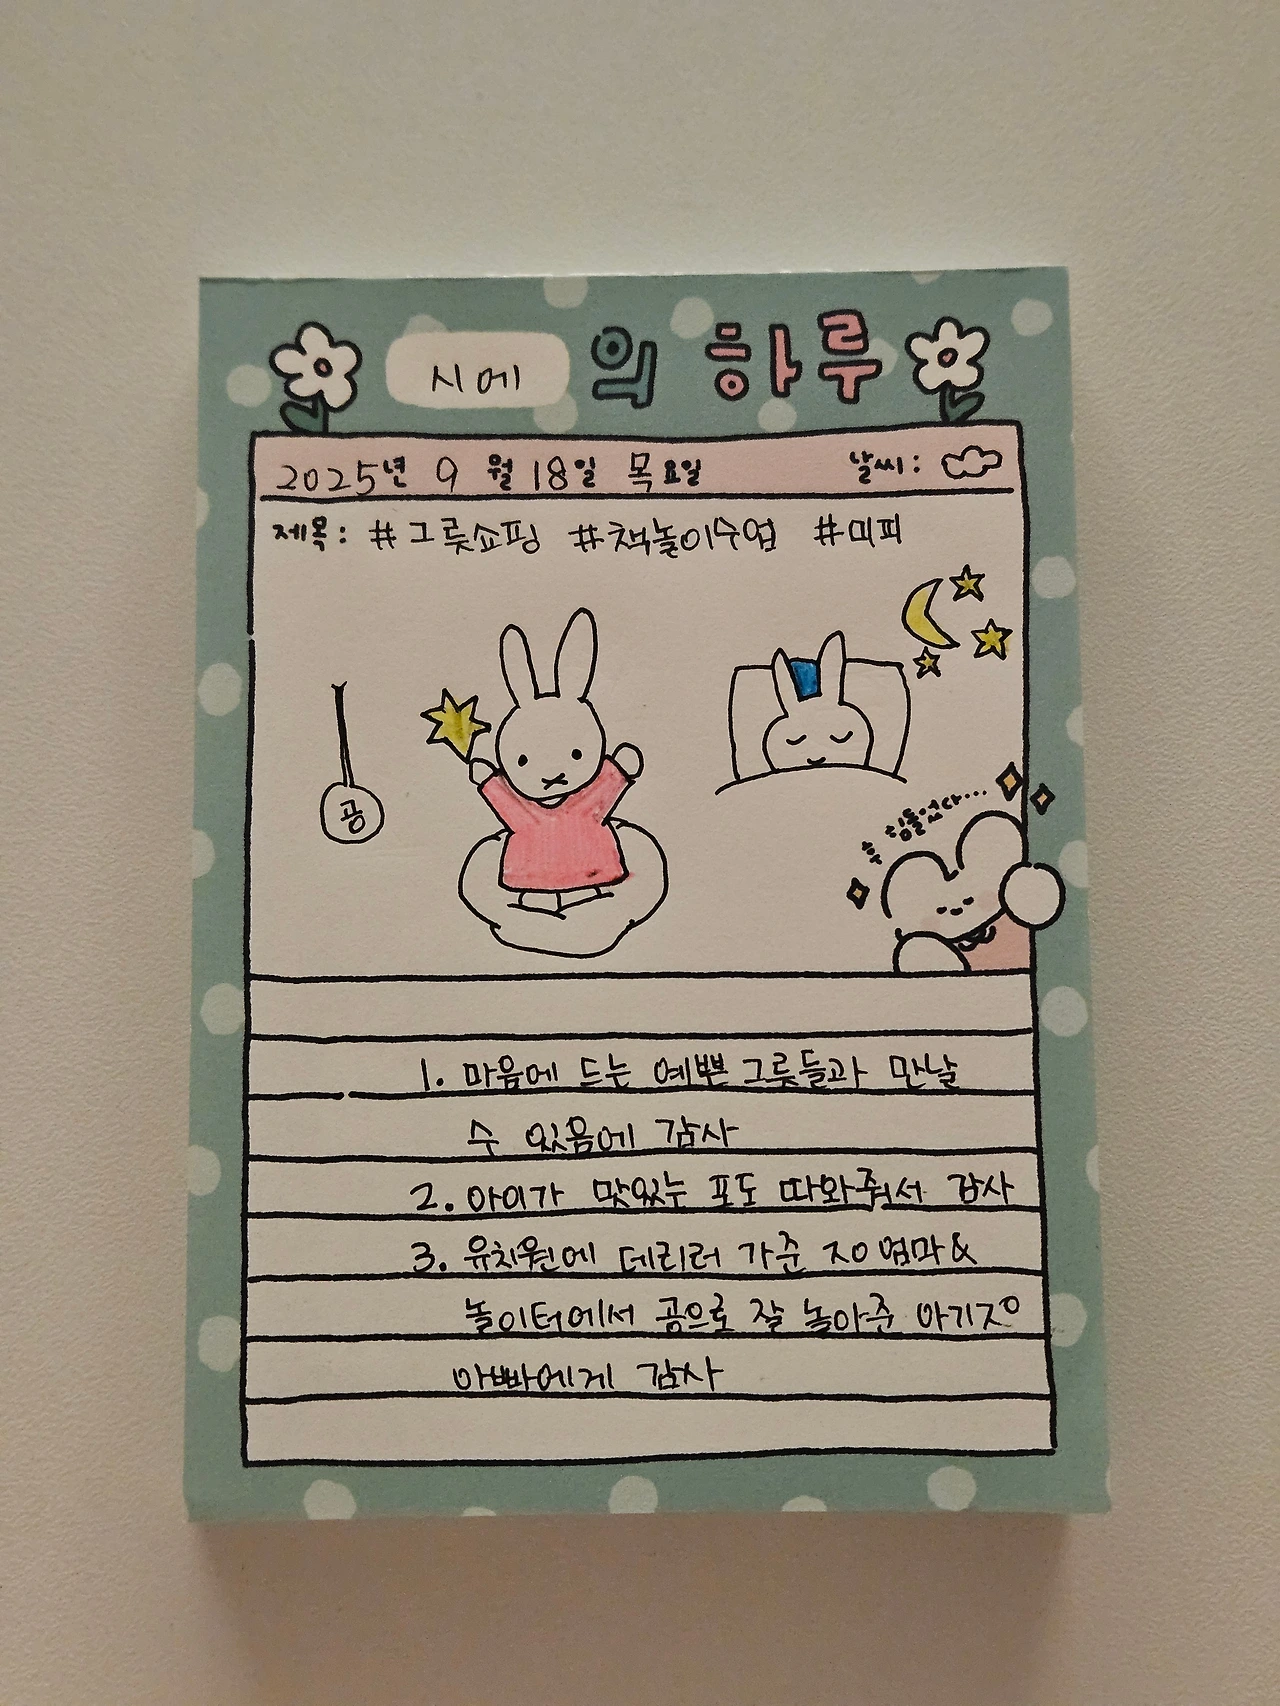 시에 의 하루
2025년 9월 18일 목요일 날씨:
제목: #그릇쇼핑 #책놀이수업 #미피
공
휴 힘들었다...
1. 마음에 드는 예쁜 그릇들과 만날
수 있음에 감사
2. 아이가 맛있는 포도 따와줘서 감사
3. 유치원에 데리러 가준 지o 엄마&
놀이터에서 공으로 잘 놀아준 아기지o
아빠에게 감사